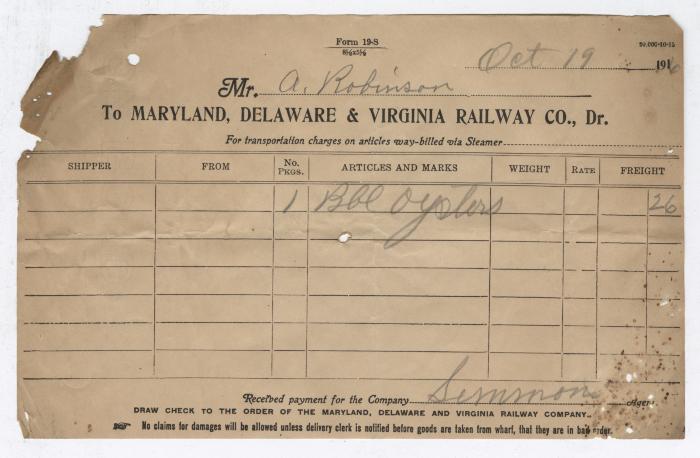 Form 19-S
8½x5½
20,000-10-15
Oct 19 1916
Mr. A. Robinson
To MARYLAND, DELAWARE & VIRGINIA RAILWAY CO., Dr.
For transportation charges on articles way-billed via Steamer
SHIPPER FROM No. PKGS. ARTICLES AND MARKS WEIGHT RATE FREIGHT
1 Bbl Oysters 26
Received payment for the Company Simmons Agent
DRAW CHECK TO THE ORDER OF THE MARYLAND, DELAWARE AND VIRGINIA RAILWAY COMPANY.
☞ No claims for damages will be allowed unless delivery clerk is notified before goods are taken from wharf, that they are in bad order.